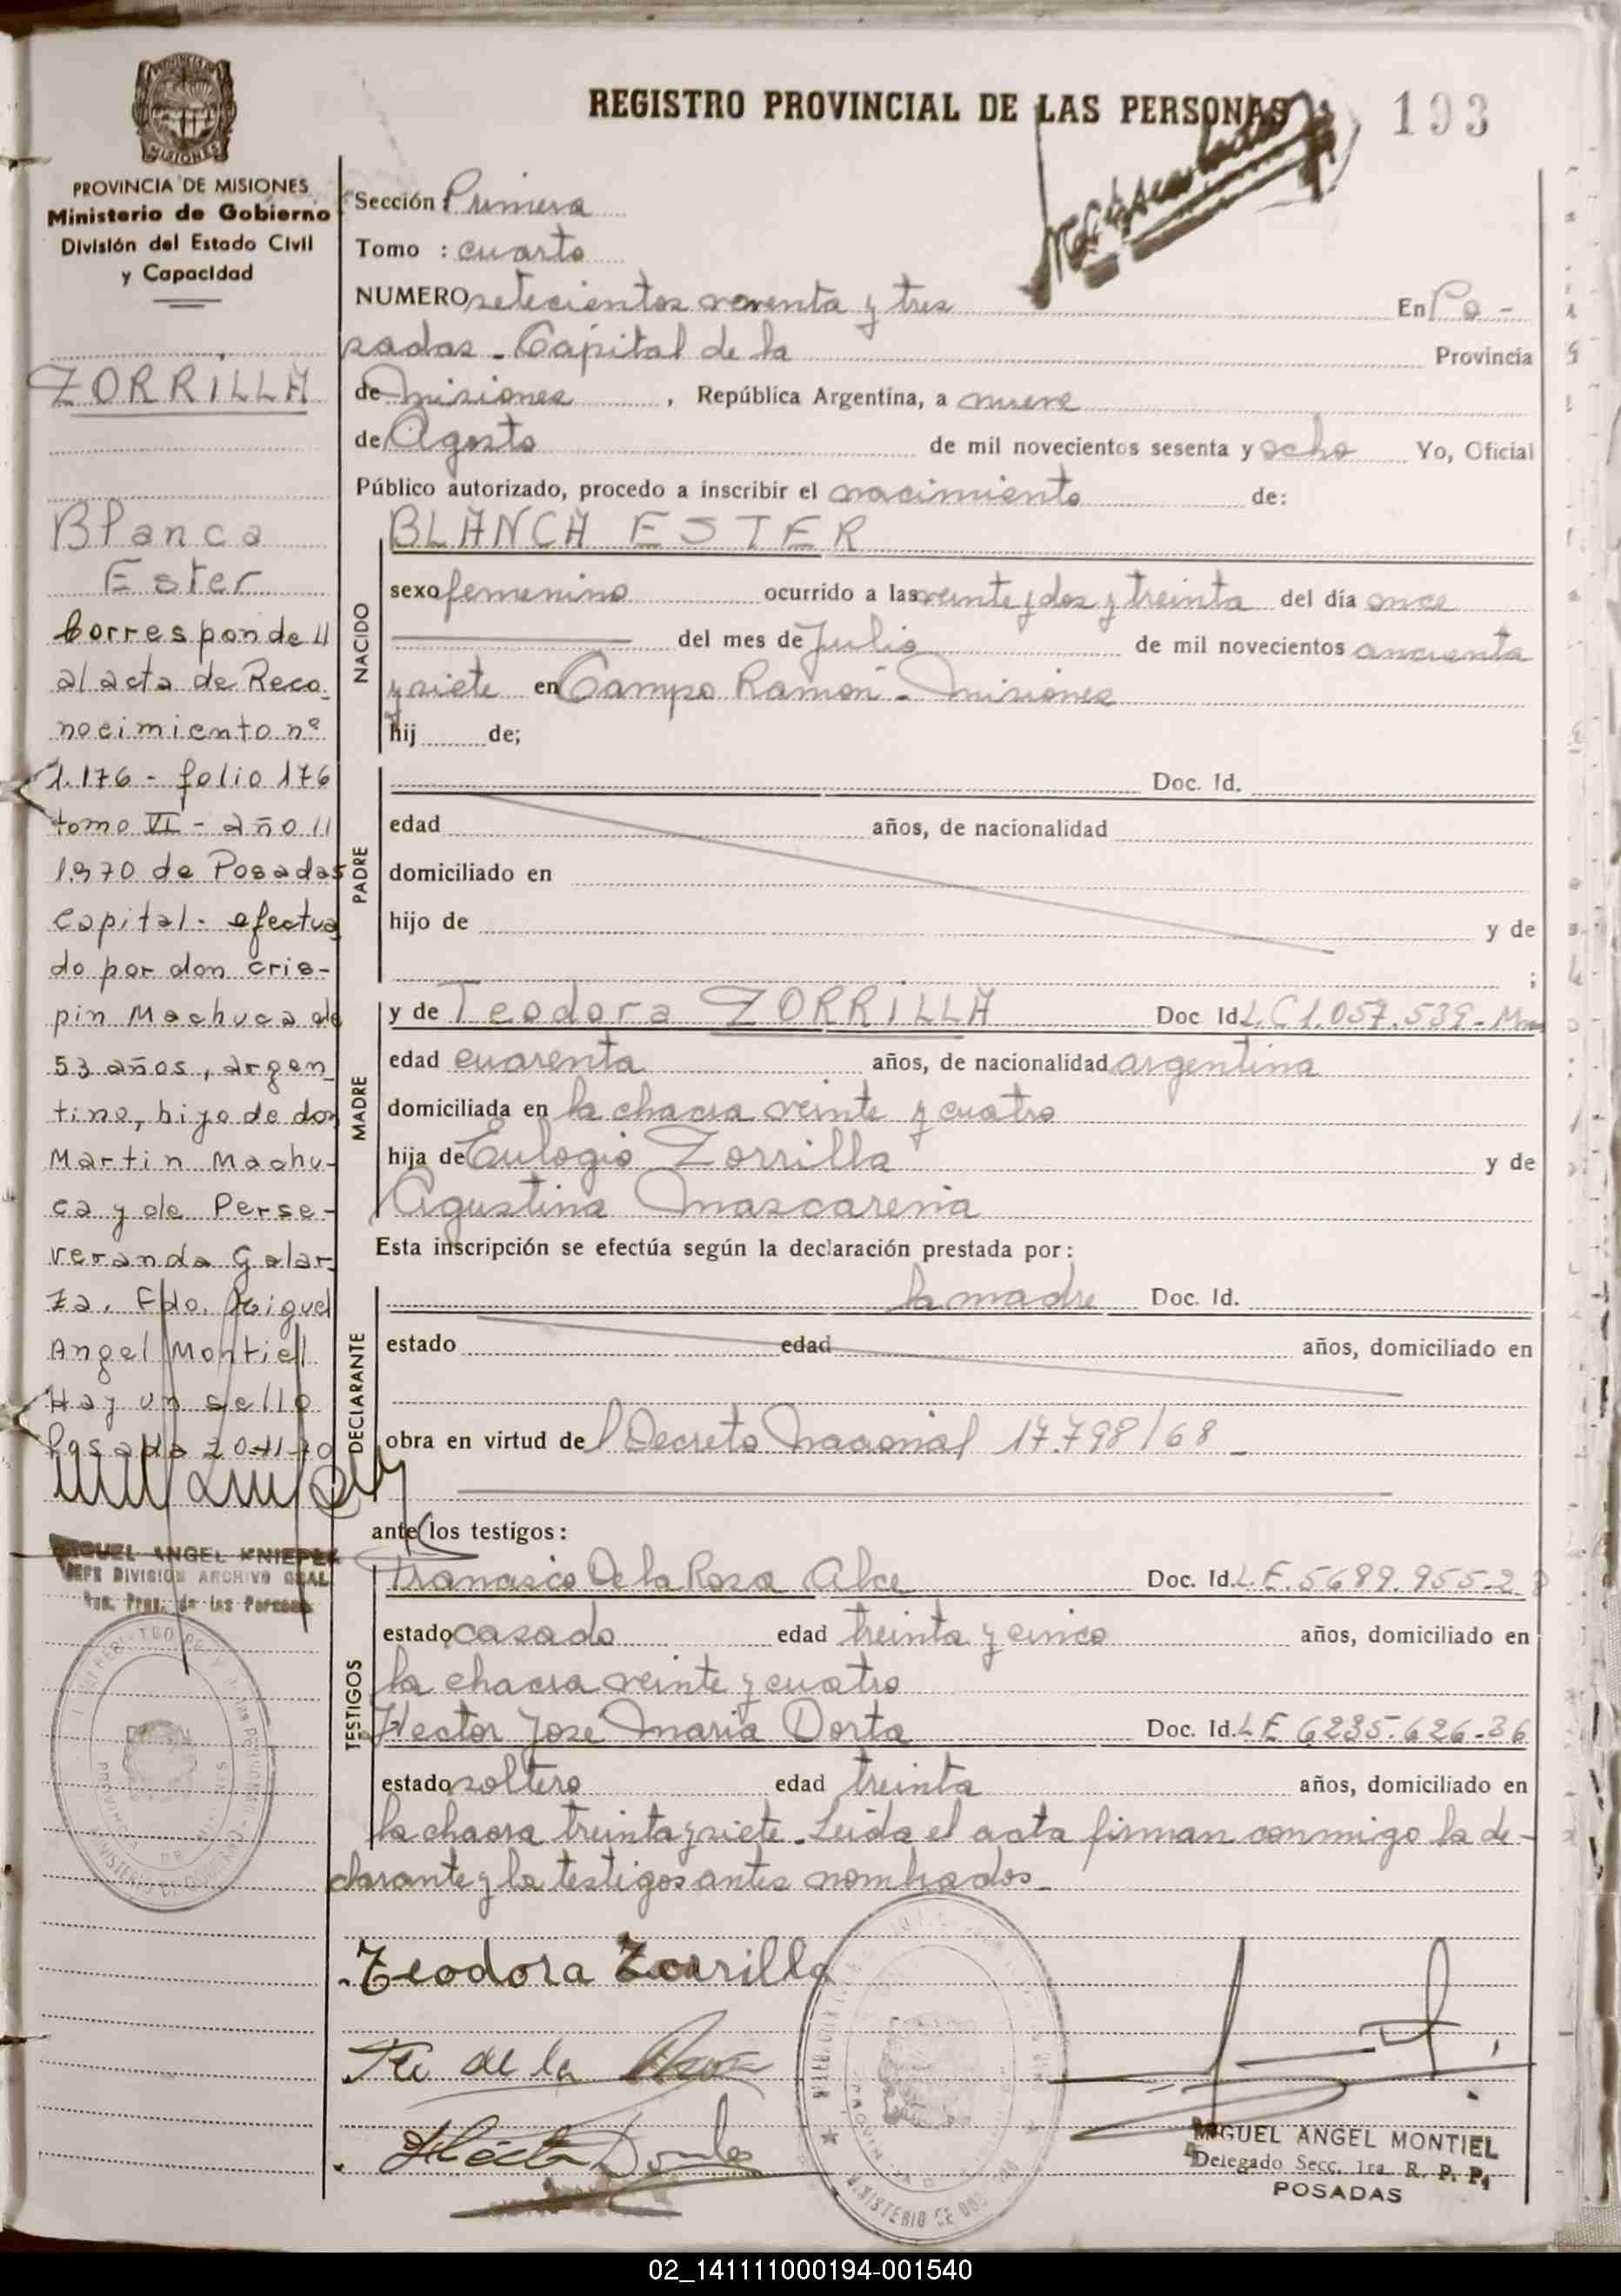 REGISTRO PROVINCIAL DE LAS PERSONAS
193
PROVINCIA DE MISIONES
Ministerio de Gobierno
División del Estado Civil
y Capacidad
ZORRILLA
Blanca
Ester
Corresponde
al acta de Reco-
nocimiento nº
1.176 - folio 176
tomo VI - año
1970 de Posadas
Capital - efectua
do por don Cris-
pin Machuca de
53 años, argen
tino, hijo de don
Martin Machu-
ca y de Perse-
veranda Galar-
za. Fdo. Miguel
Angel Montiel
Hay un sello
Posadas 20-11-70
MIGUEL ANGEL KNIEPER
JEFE DIVISION ARCHIVO GRAL
Reg. Prov. de las Personas
Sección : Primera
Tomo : cuarto
NUMERO setecientos noventa y tres En Po-
sadas - Capital de la Provincia
de Misiones , República Argentina, a nueve
de Agosto de mil novecientos sesenta y ocho Yo, Oficial
Público autorizado, procedo a inscribir el nacimiento de:
NACIDO
BLANCA ESTER
sexo femenino ocurrido a las veinte y dos y treinta del día once
del mes de Julio de mil novecientos cincuenta
y siete en Campo Ramón - Misiones
hij de;
PADRE
Doc. Id.
edad años, de nacionalidad
domiciliado en
hijo de y de
;
MADRE
y de Teodora ZORRILLA Doc Id. L.C 1.057.539 -
edad cuarenta años, de nacionalidad argentina
domiciliada en la chacra veinte y cuatro
hija de Eulogio Zorrilla y de
Agustina Mascareña
Esta inscripción se efectúa según la declaración prestada por :
DECLARANTE
la madre Doc. Id.
estado edad años, domiciliado en
obra en virtud del Decreto Nacional 17.798/68 -
ante los testigos :
TESTIGOS
Francisco De la Rosa Alce Doc. Id. L.E. 5689.955-2
estado casado edad treinta y cinco años, domiciliado en
la chacra veinte y cuatro
Hector José Maria Dorta Doc. Id. L E 6235.626-36
estado soltero edad treinta años, domiciliado en
la chacra treinta y siete. Leida el acta firman conmigo la de-
clarante y los testigos antes nombrados -
Teodora Zorrilla
de la
MIGUEL ANGEL MONTIEL
Delegado Secc. 1ra R. P. P.
POSADAS
02_141111000194-001540